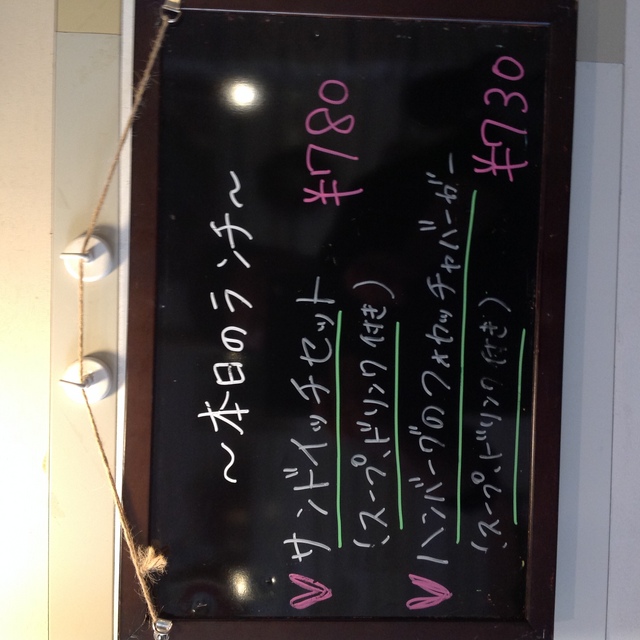 ～本日のランチ～
サンドイッチセット ¥780
(スープ、ドリンク付き)
ハンバーグのフォカッチャバーガー ¥730
(スープ、ドリンク付き)